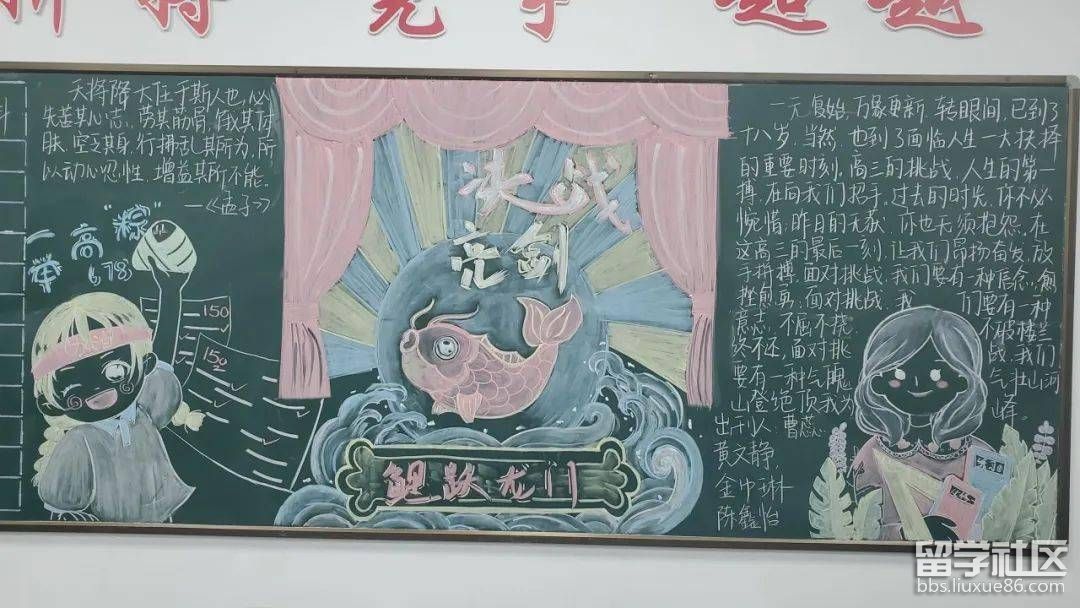 竞争 超越
天将降大任于斯人也,必
先苦其心志,劳其筋骨,饿其体
肤,空乏其身,行拂乱其所为,所
以动心忍性,增益其所不能。
—《孟子》
一
举
高"粽"
6.7.8
150
150
决战
亮剑
鲤跃龙门
一元复始,万象更新,转眼间,已到了
十八岁,当然,也到了面临人生一大抉择
的重要时刻,高三的挑战,人生的第一
搏,在向我们招手,过去的时光,你不必
惋惜,昨日的无获,你也无须抱怨,在
这高三的最后一刻,让我们昂扬奋发,放
手拼搏,面对挑战,我们要有一种信念,愈
挫愈勇,面对挑战,我们要有一种
意志,不屈不挠,不破楼兰
终不还,面对挑战,我们
要有一种气魄,气壮山河
山登绝顶我为峰。
出刊人:曹蕊
黄文静,
金中琳
陈鑫怡
留学社区
bbs.liuxue86.com